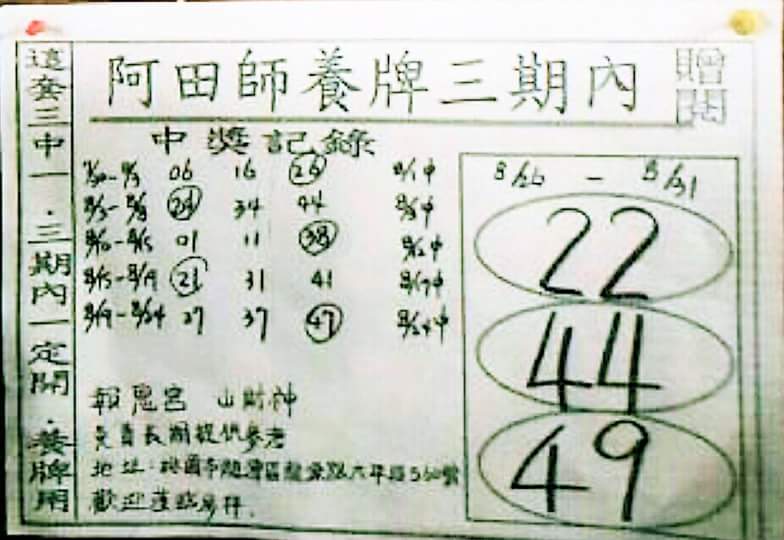 阿田師養牌三期內
贈閱
這套三中一.三期內一定開.養牌用
中獎記錄
7/30-8/3 06 16 26 8/1中
8/3-8/8 24 34 44 8/8中
8/10-8/15 01 11 38 8/12中
8/15-8/19 21 31 41 8/17中
8/19-8/24 27 37 47 8/24中
8/26 - 8/31
22
44
49
報 宮 山財神
免費長期提供參考
地址:桃園市 區 六 路560號
歡迎蒞臨 拜.